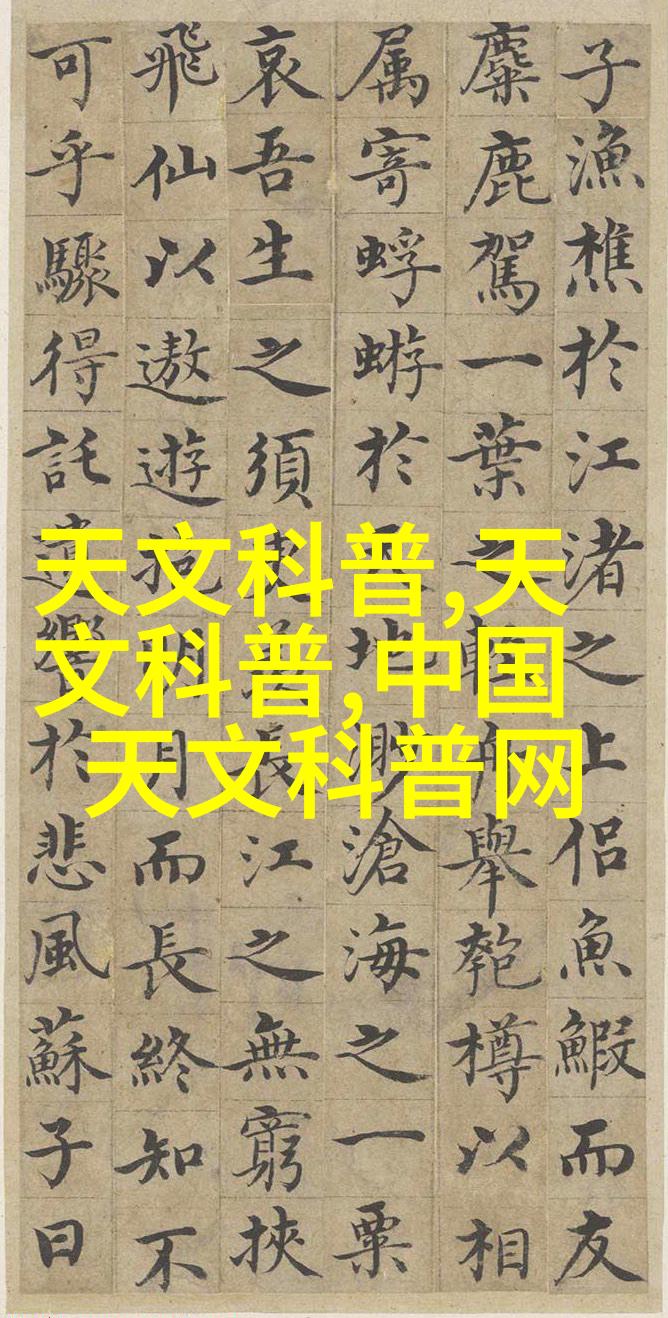 子漁樵於江渚之上侶魚鰕而友
麋鹿駕一葉之輕舟舉匏樽以相
属寄蜉蝣於天地渺滄海之一粟
哀吾生之須臾羨長江之無窮挾
飛仙以遨遊抱明月而長終知不
可乎驟得託遺響於悲風蘇子曰
天文科普,天
文科普,中国
天文科普网